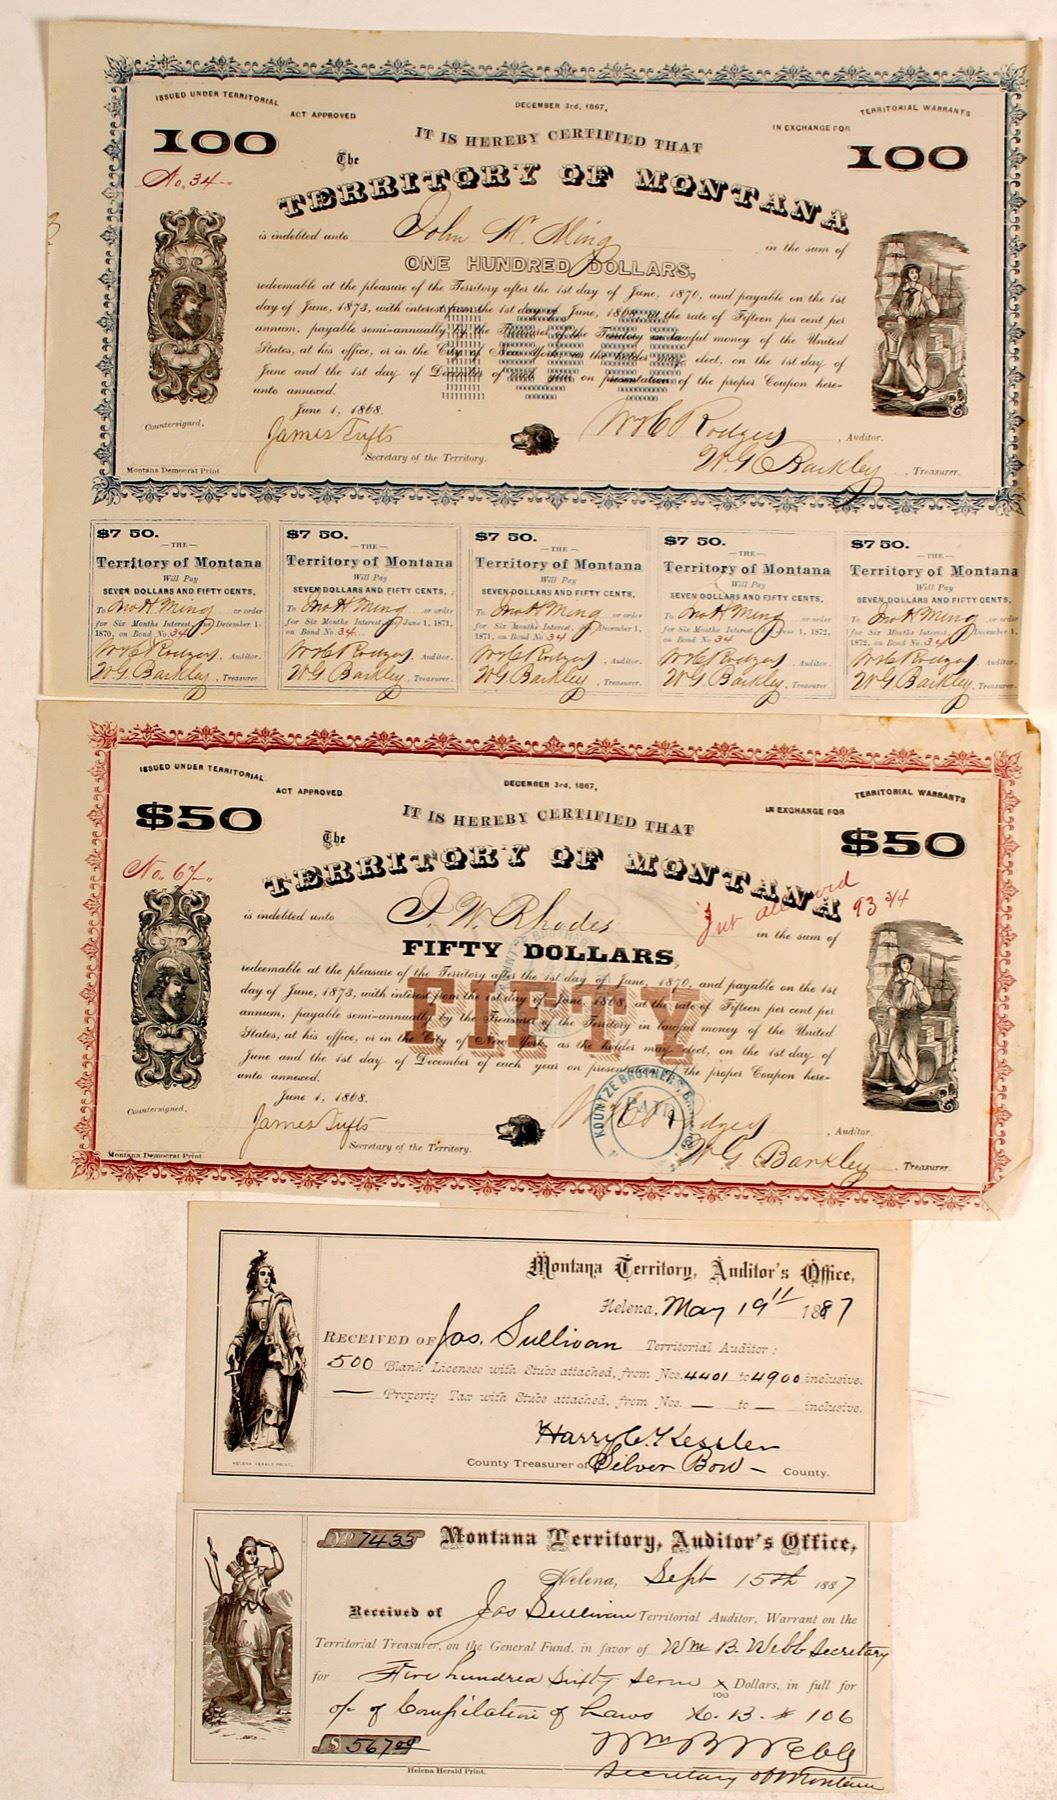 ISSUED UNDER TERRITORIAL ACT APPROVED DECEMBER 3rd, 1867, IN EXCHANGE FOR TERRITORIAL WARRANTS
100 100
IT IS HEREBY CERTIFIED THAT
No. 34
The
TERRITORY OF MONTANA
is indebted unto John H. Ming in the sum of
ONE HUNDRED DOLLARS,
redeemable at the pleasure of the Territory after the 1st day of June, 1870, and payable on the 1st
day of June, 1873, with interest from the 1st day of June, 1868, at the rate of Fifteen per cent per
annum, payable semi-annually by the Treasurer of the Territory in lawful money of the United
States, at his office, or in the City of New York, as the holder may elect, on the 1st day of
June and the 1st day of December of each year on presentation of the proper Coupon here-
unto annexed.
100
June 1, 1868.
Countersigned,
James Tufts
Secretary of the Territory.
W H C Rodgers, Auditor.
W. G. Barkley, Treasurer.
Montana Democrat Print
$7 50.
—THE—
Territory of Montana
Will Pay
SEVEN DOLLARS AND FIFTY CENTS,
To Jno H Ming or order
for Six Months Interest, due December 1,
1870, on Bond No. 34
W H C Rodgers, Auditor.
W G Barkley, Treasurer
$7 50.
—THE—
Territory of Montana
Will Pay
SEVEN DOLLARS AND FIFTY CENTS,
To Jno H Ming or order
for Six Months Interest, due June 1, 1871,
on Bond No. 34
W H C Rodgers, Auditor.
W G Barkley, Treasurer.
$7 50.
—THE—
Territory of Montana
Will Pay
SEVEN DOLLARS AND FIFTY CENTS,
To Jno H Ming or order
for Six Months Interest, due December 1,
1871, on Bond No. 34
W H C Rodgers, Auditor.
W G Barkley, Treasurer.
$7 50.
—THE—
Territory of Montana
Will Pay
SEVEN DOLLARS AND FIFTY CENTS,
To Jno H Ming or order
for Six Months Interest, due June 1, 1872,
on Bond No. 34
W H C Rodgers, Auditor.
W G Barkley, Treasurer.
$7 50.
—THE—
Territory of Montana
Will Pay
SEVEN DOLLARS AND FIFTY CENTS,
To Jno H Ming or order
for Six Months Interest, due December 1,
1872, on Bond No. 34
W H C Rodgers, Auditor.
W G Barkley, Treasurer.
ISSUED UNDER TERRITORIAL ACT APPROVED DECEMBER 3rd, 1867, IN EXCHANGE FOR TERRITORIAL WARRANTS
$50 $50
IT IS HEREBY CERTIFIED THAT
No. 67
The
TERRITORY OF MONTANA
Int allowed 93 3/4
is indebted unto J. W. Rhodes in the sum of
FIFTY DOLLARS,
redeemable at the pleasure of the Territory after the 1st day of June, 1870, and payable on the 1st
day of June, 1873, with interest from the 1st day of June, 1868, at the rate of Fifteen per cent per
annum, payable semi-annually by the Treasurer of the Territory in lawful money of the United
States, at his office, or in the City of New York, as the holder may elect, on the 1st day of
June and the 1st day of December of each year on presentation of the proper Coupon here-
unto annexed.
FIFTY
June 1, 1868.
Countersigned,
James Tufts
Secretary of the Territory.
KOUNTZE BROTHERS,
PAID
W H C Rodgers, Auditor.
W G Barkley, Treasurer.
Montana Democrat Print
Montana Territory, Auditor's Office,
Helena, May 19th 1887
RECEIVED OF Jas. Sullivan Territorial Auditor:
500 Blank Licenses with Stubs attached, from Nos. 4401 to 4900 inclusive.
— Property Tax with Stubs attached, from Nos. — to — inclusive.
Harry C. Kessler
County Treasurer of Silver Bow — County.
HELENA HERALD PRINT.
No 7433 Montana Territory, Auditor's Office,
Helena, Sept 15th 1887
Received of Jas Sullivan Territorial Auditor, Warrant on the
Territorial Treasurer, on the General Fund, in favor of Wm B. Webb Secretary
for Five hundred Sixty seven x/100 Dollars, in full for
of Compilation of Laws C. B. # 106
$ 567.09
Wm B Webb
Secretary of Montana
Helena Herald Print.